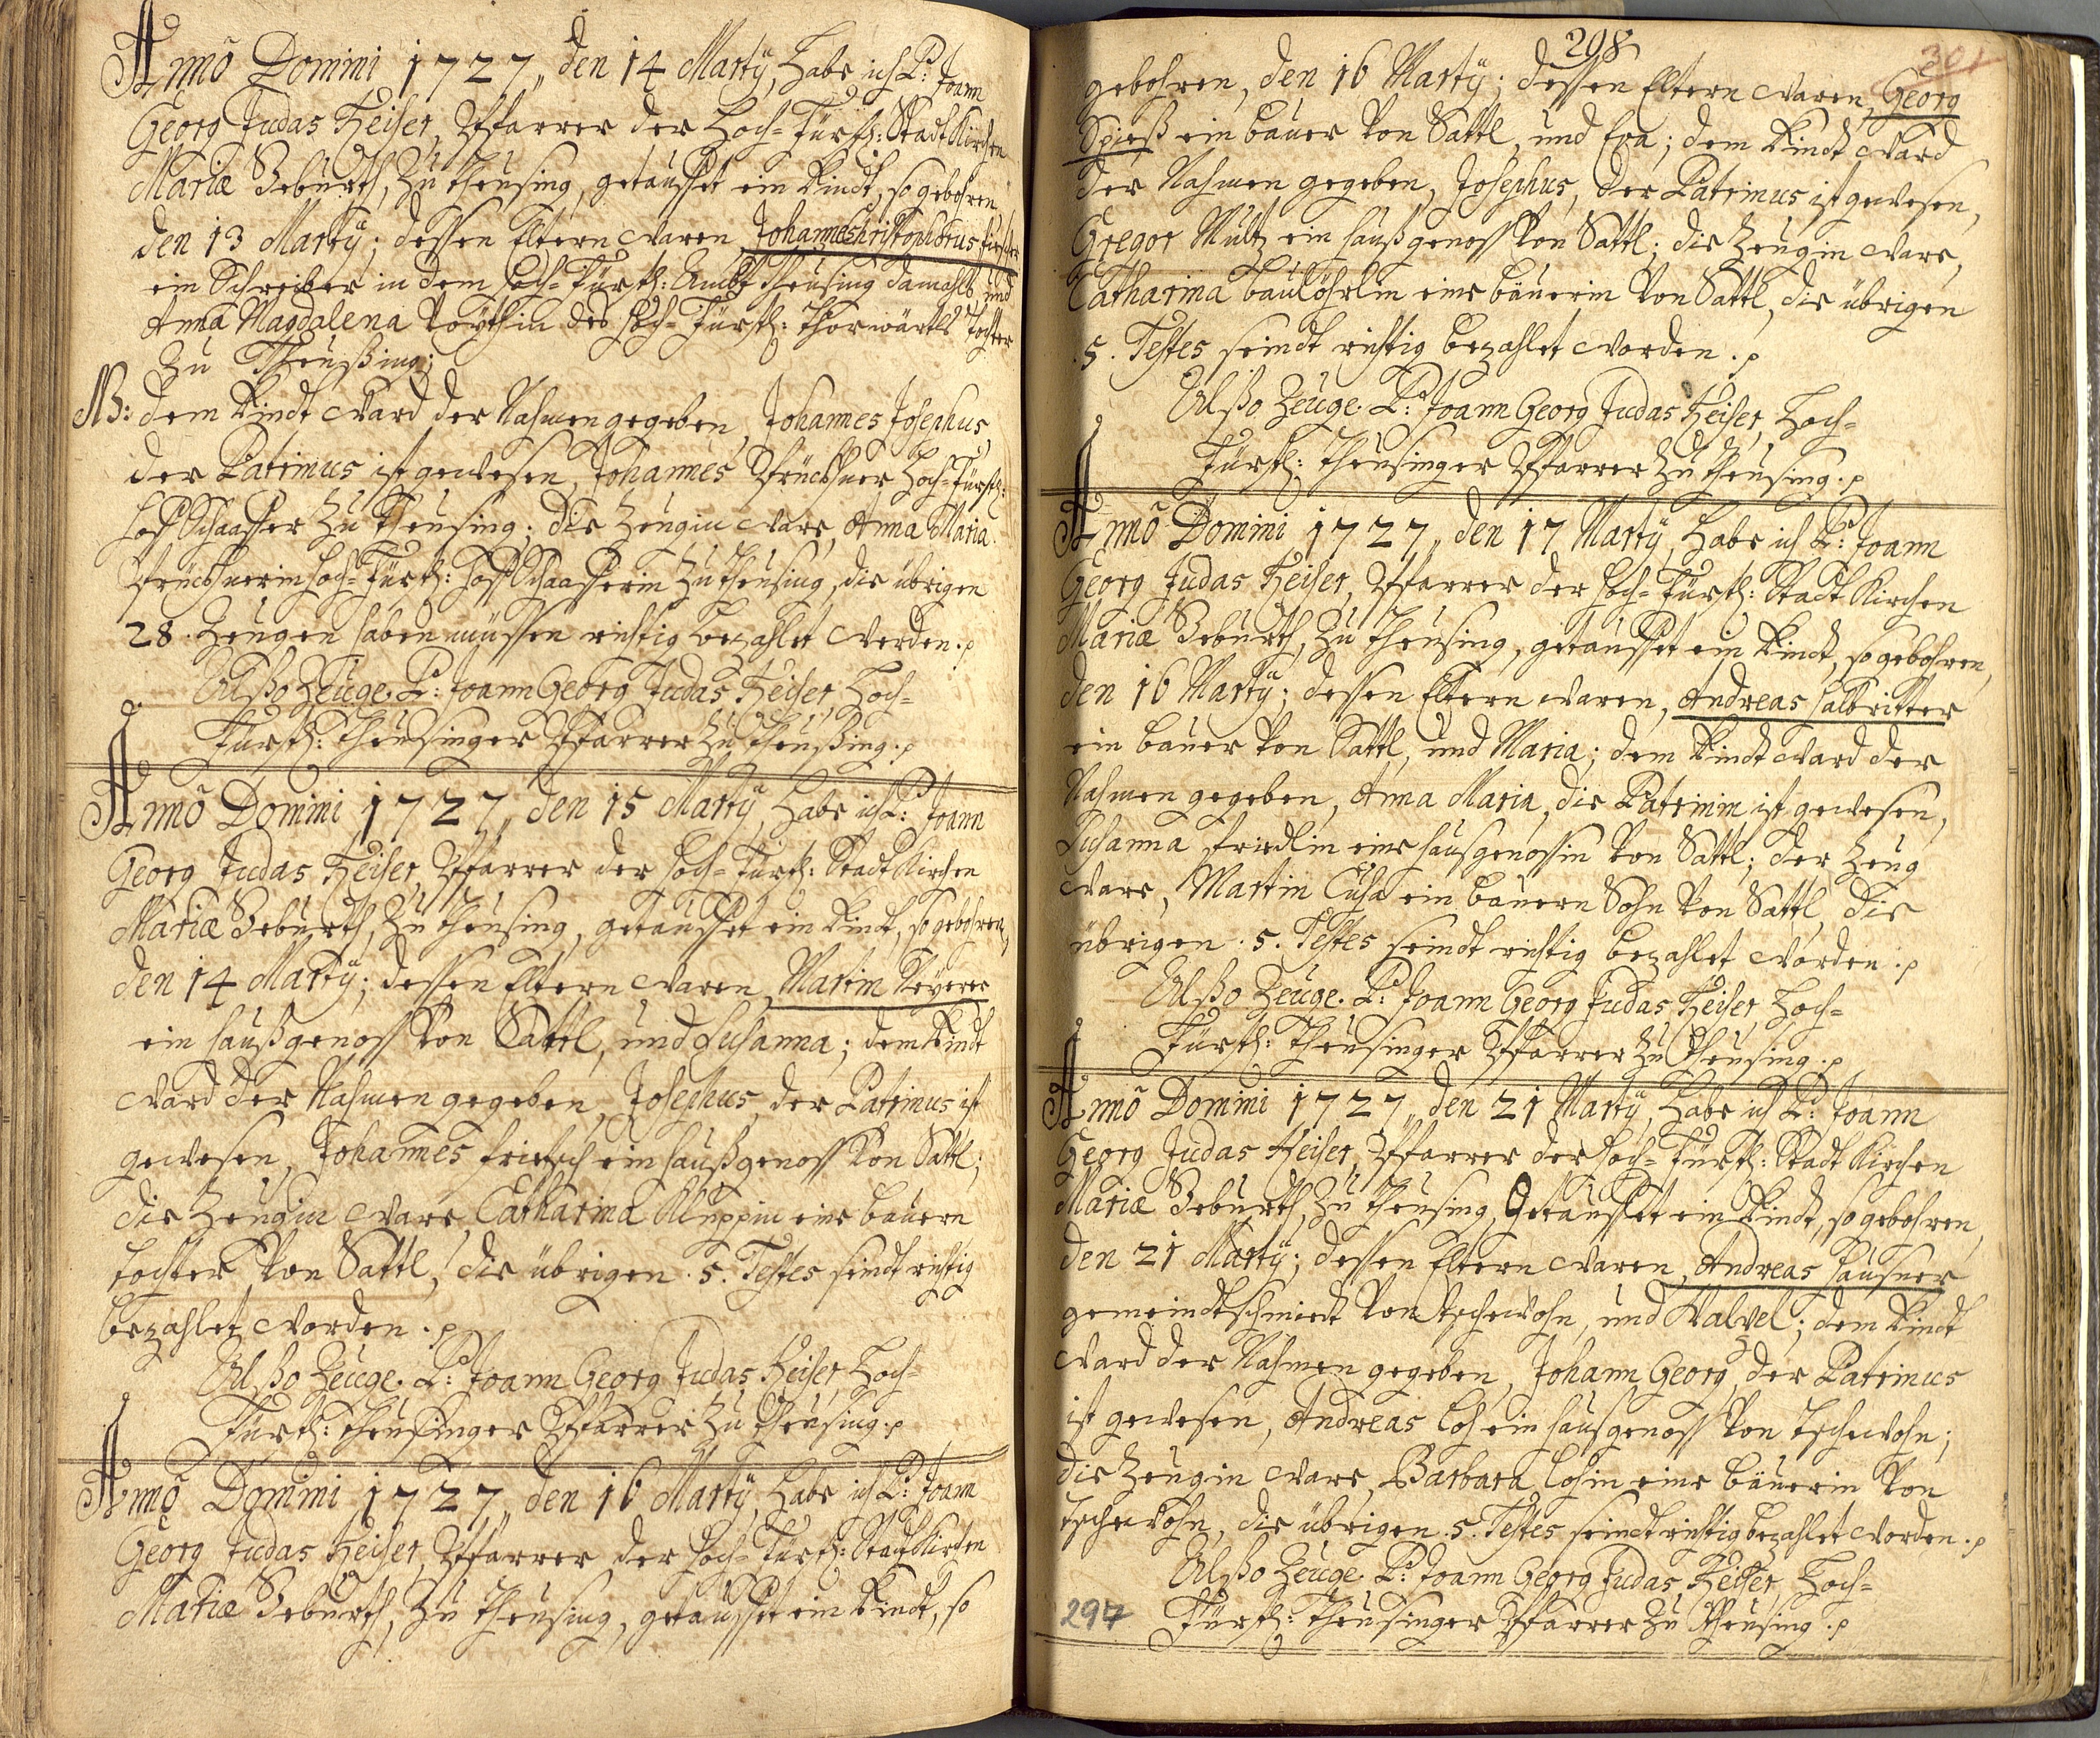 Anno Domini 1727, den 14 Martÿ, habe ich P: Joann
Georg Judas Heiser, Pfarrer der Hoch-Fürstl: Stadt Kirchen
Mariæ Geburth, zu Theusing, getauffet ein Kindt, so gebohren
den 13 Martÿ; dessen Eltern waren, Johannes Christophorus
ein Schreiber in dem Hoch-Fürstl: Ambt Theusing damahls, und
Anna Magdalena des Hoch-Fürstl: Thorwärtls Tochter
zu Theußing;
NB: dem Kindt ward der Nahmen gegeben, Johannes Josephus,
der Patrinus ist gewesen, Johannes Hoch-Fürstl:
Hoff Schaaffer zu Theusing; die Zeugin ware, Anna Maria
Hoch-Fürstl: Hoff Schaafferin zu Theusing, die übrigen
28. Zeugen haben müssen richtig bezahlet werden. p
Alßo Zeuge. P: Joann Georg Judas Heiser, Hoch-
Fürstl: Theusinger Pfarrer zu Theußing. p
Anno Domini 1727, den 15 Martÿ, habe ich P: Joann
Georg Judas Heiser, Pfarrer der Hoch-Fürstl: Stadt Kirchen
Mariæ Geburth, zu Theusing, getauffet ein Kindt, so gebohren,
den 14 Martÿ; dessen Eltern waren, Martin
ein Haußgenoss von Sattl, und Susanna; dem Kindt
ward der Nahmen gegeben, Josephus, der Patrinus ist
gewesen, Johannes Frietsch ein Haußgenoss von Sattl;
die Zeugin ware, Catharina Kluppin eine Bauern
Tochter von Sattl, die übrigen. 5. Testes seindt richtig
bezahlet worden. p
Alßo Zeuge. P: Joann Georg Judas Heiser, Hoch-
Fürstl: Theusinger Pfarrer zu Theusing. p
Anno Domini 1727, den 16 Martÿ, habe ich P: Joann
Georg Judas Heiser, Pfarrer der Hoch-Fürstl: Stadt Kirchen
Mariæ Geburth, zu Theusing, getauffet ein Kindt, so
298
301
gebohren, den 16 Martÿ; dessen Eltern waren, Georg
Spieß ein Bauer von Sattl, und Eva; dem Kindt ward
der Nahmen gegeben, Josephus, der Patrinus ist gewesen,
Gregor Multz ein Haußgenoss von Sattl; die Zeugin ware,
Catharina eine Bäuerin von Sattl, die übrigen
5. Testes seindt richtig bezahlet worden. p
Alßo Zeuge. P: Joann Georg Judas Heiser, Hoch-
Fürstl: Theusinger Pfarrer zu Theusing. p
Anno Domini 1727, den 17 Martÿ, habe ich P: Joann
Georg Judas Heiser, Pfarrer der Hoch-Fürstl: Stadt Kirchen
Mariæ Geburth, zu Theusing, getauffet ein Kindt, so gebohren,
den 16 Martÿ; dessen Eltern waren, Andreas Halbritter
ein Bauer von Sattl, und Maria; dem Kindt ward der
Nahmen gegeben, Anna Maria, die Patrinin ist gewesen,
Susanna Friedlin eine Hausgenossin von Sattl; der Zeug
ware, Martin Cuha ein Bauern Sohn von Sattl, die
übrigen. 5. Testes seindt richtig bezahlet worden. p
Alßo Zeuge. P: Joann Georg Judas Heiser, Hoch-
Fürstl: Theusinger Pfarrer zu Theusing. p
Anno Domini 1727, den 21 Martÿ, habe ich P: Joann
Georg Judas Heiser, Pfarrer der Hoch-Fürstl: Stadt Kirchen
Mariæ Geburth, zu Theusing, Getauffet ein Kindt, so gebohren,
den 21 Martÿ; dessen Eltern waren, Andreas Hausner
gemeindtschmiedt von Tschewohn, und ; dem Kindt
ward der Nahmen gegeben, Johann Georg, der Patrinus
ist gewesen, Andreas Loh ein Hausgenoss von Tschewohn;
die Zeugin ware, Barbara Lohin eine Bäuerin von
Tschewohn, die übrigen. 5. Testes seindt richtig bezahlet worden. p
Alßo Zeuge. P: Joann Georg Judas Heiser, Hoch-
297 Fürstl: Theusinger Pfarrer zu Theusing. p